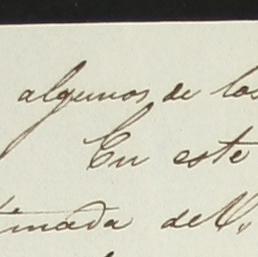 algunos de los
En este
timada del V.